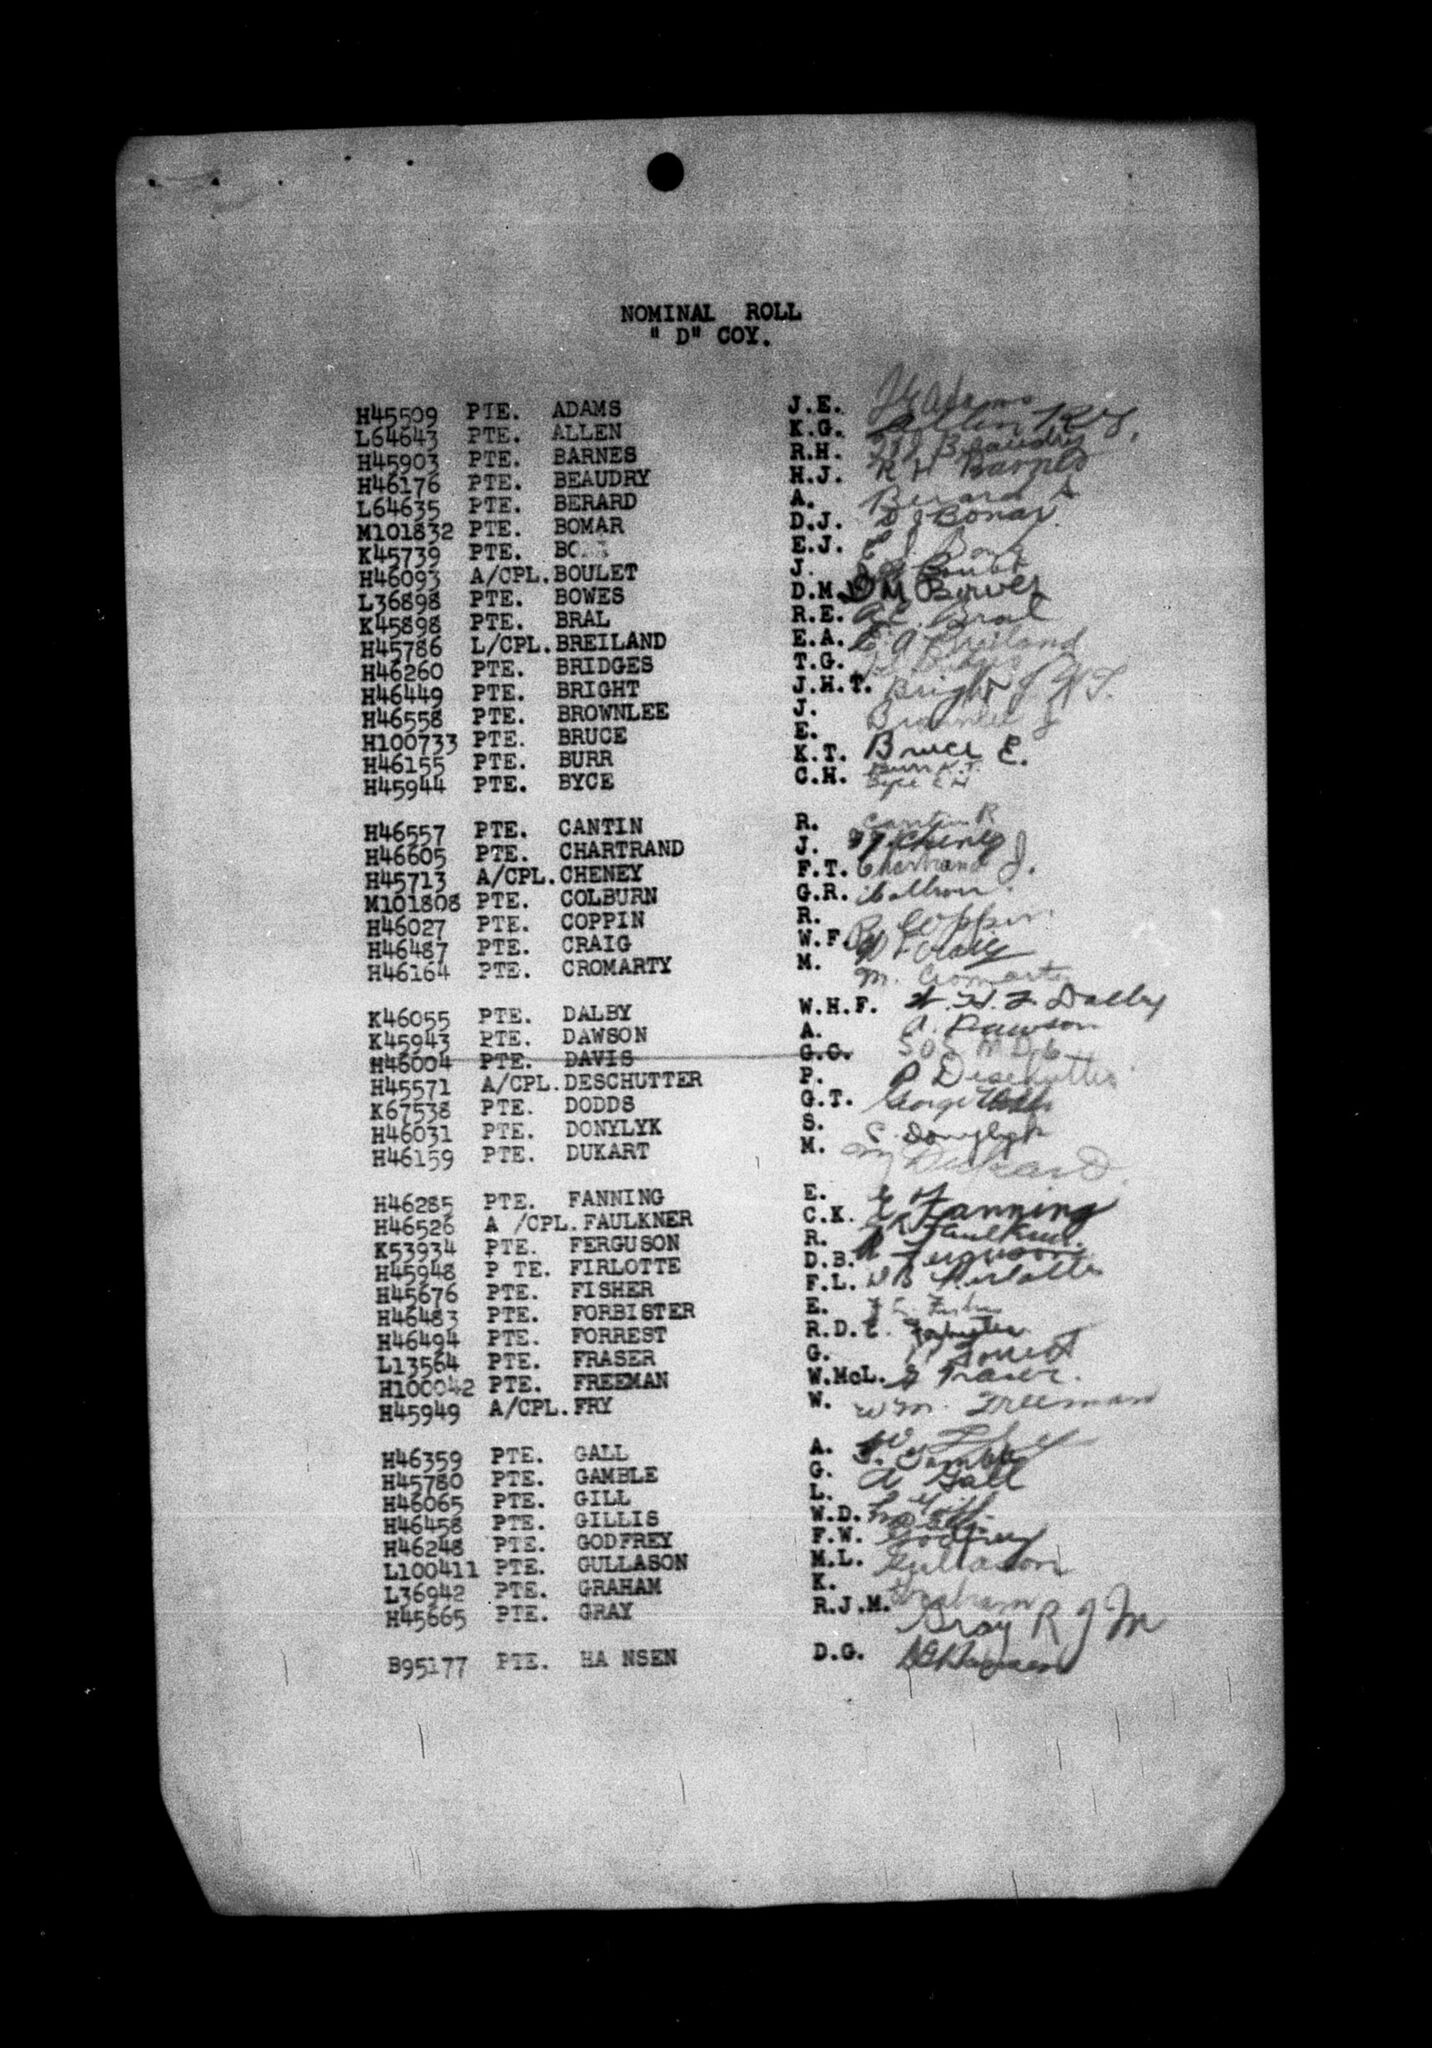 NOMINAL ROLL
" D" COY.
H45509 PTE. ADAMS J.E. Adams
L64643 PTE. ALLEN K.G. Allen K G.
H45903 PTE. BARNES R.H. Beaudry
H46176 PTE. BEAUDRY H.J. R H Barnes
L64635 PTE. BERARD A. Berard A
M101832 PTE. BOMAR D.J. D J Bomar
K45739 PTE. E.J. E J
H46093 A/CPL. BOULET J.
L36898 PTE. BOWES D.M. D M Bowes
K45898 PTE. BRAL R.E. R.E. Bral
H45786 L/CPL. BREILAND E.A. E A Breiland
H46260 PTE. BRIDGES T.G. Bridges
H46449 PTE. BRIGHT J.H.T. Bright J H T.
H46558 PTE. BROWNLEE J. Brownlee J
H100733 PTE. BRUCE E. Bruce E.
H46155 PTE. BURR K.T. Burr K.T.
H45944 PTE. BYCE C.H. Byce C H
H46557 PTE. CANTIN R. Cantin R
H46605 PTE. CHARTRAND J. F T Cheney
H45713 A/CPL. CHENEY F.T. Chartrand J.
M101808 PTE. COLBURN G.R.
H46027 PTE. COPPIN R. R Coppin
H46487 PTE. CRAIG W.F. W F Craig
H46164 PTE. CROMARTY M. M. Cromarty
K46055 PTE. DALBY W.H.F. W. H. F Dalby
K45943 PTE. DAWSON A. A. Dawson
H46004 PTE. DAVIS G.G. SOS M.D.6
H45571 A/CPL. DESCHUTTER P. P Deschutter
K67538 PTE. DODDS G.T. George Dodds
H46031 PTE. DONYLYK S. S. Donylyk
H46159 PTE. DUKART M. M Dukard.
H46285 PTE. FANNING E. E Fanning
H46526 A /CPL. FAULKNER C.K. C K Faulkner
K53934 PTE. FERGUSON R. R Ferguson
H45948 P TE. FIRLOTTE D.B. D B Firlotte
H45676 PTE. FISHER F.L. F L Fisher
H46483 PTE. FORBISTER E. E. Forbister
H46494 PTE. FORREST R.D. Forrest
L13564 PTE. FRASER G. G Fraser.
H100042 PTE. FREEMAN W.McL. Wm. Freeman
H45949 A/CPL. FRY W. W Fry
H46359 PTE. GALL A. G. Gamble
H45780 PTE. GAMBLE G. A Gall
H46065 PTE. GILL L. L Gill
H46458 PTE. GILLIS W.D.
H46248 PTE. GODFREY F.W. Godfrey
L100411 PTE. GULLASON M.L. Gullason
L36942 PTE. GRAHAM K. Graham
H45665 PTE. GRAY R.J.M. Gray R J M
B95177 PTE. HA NSEN D.G. D G Hansen